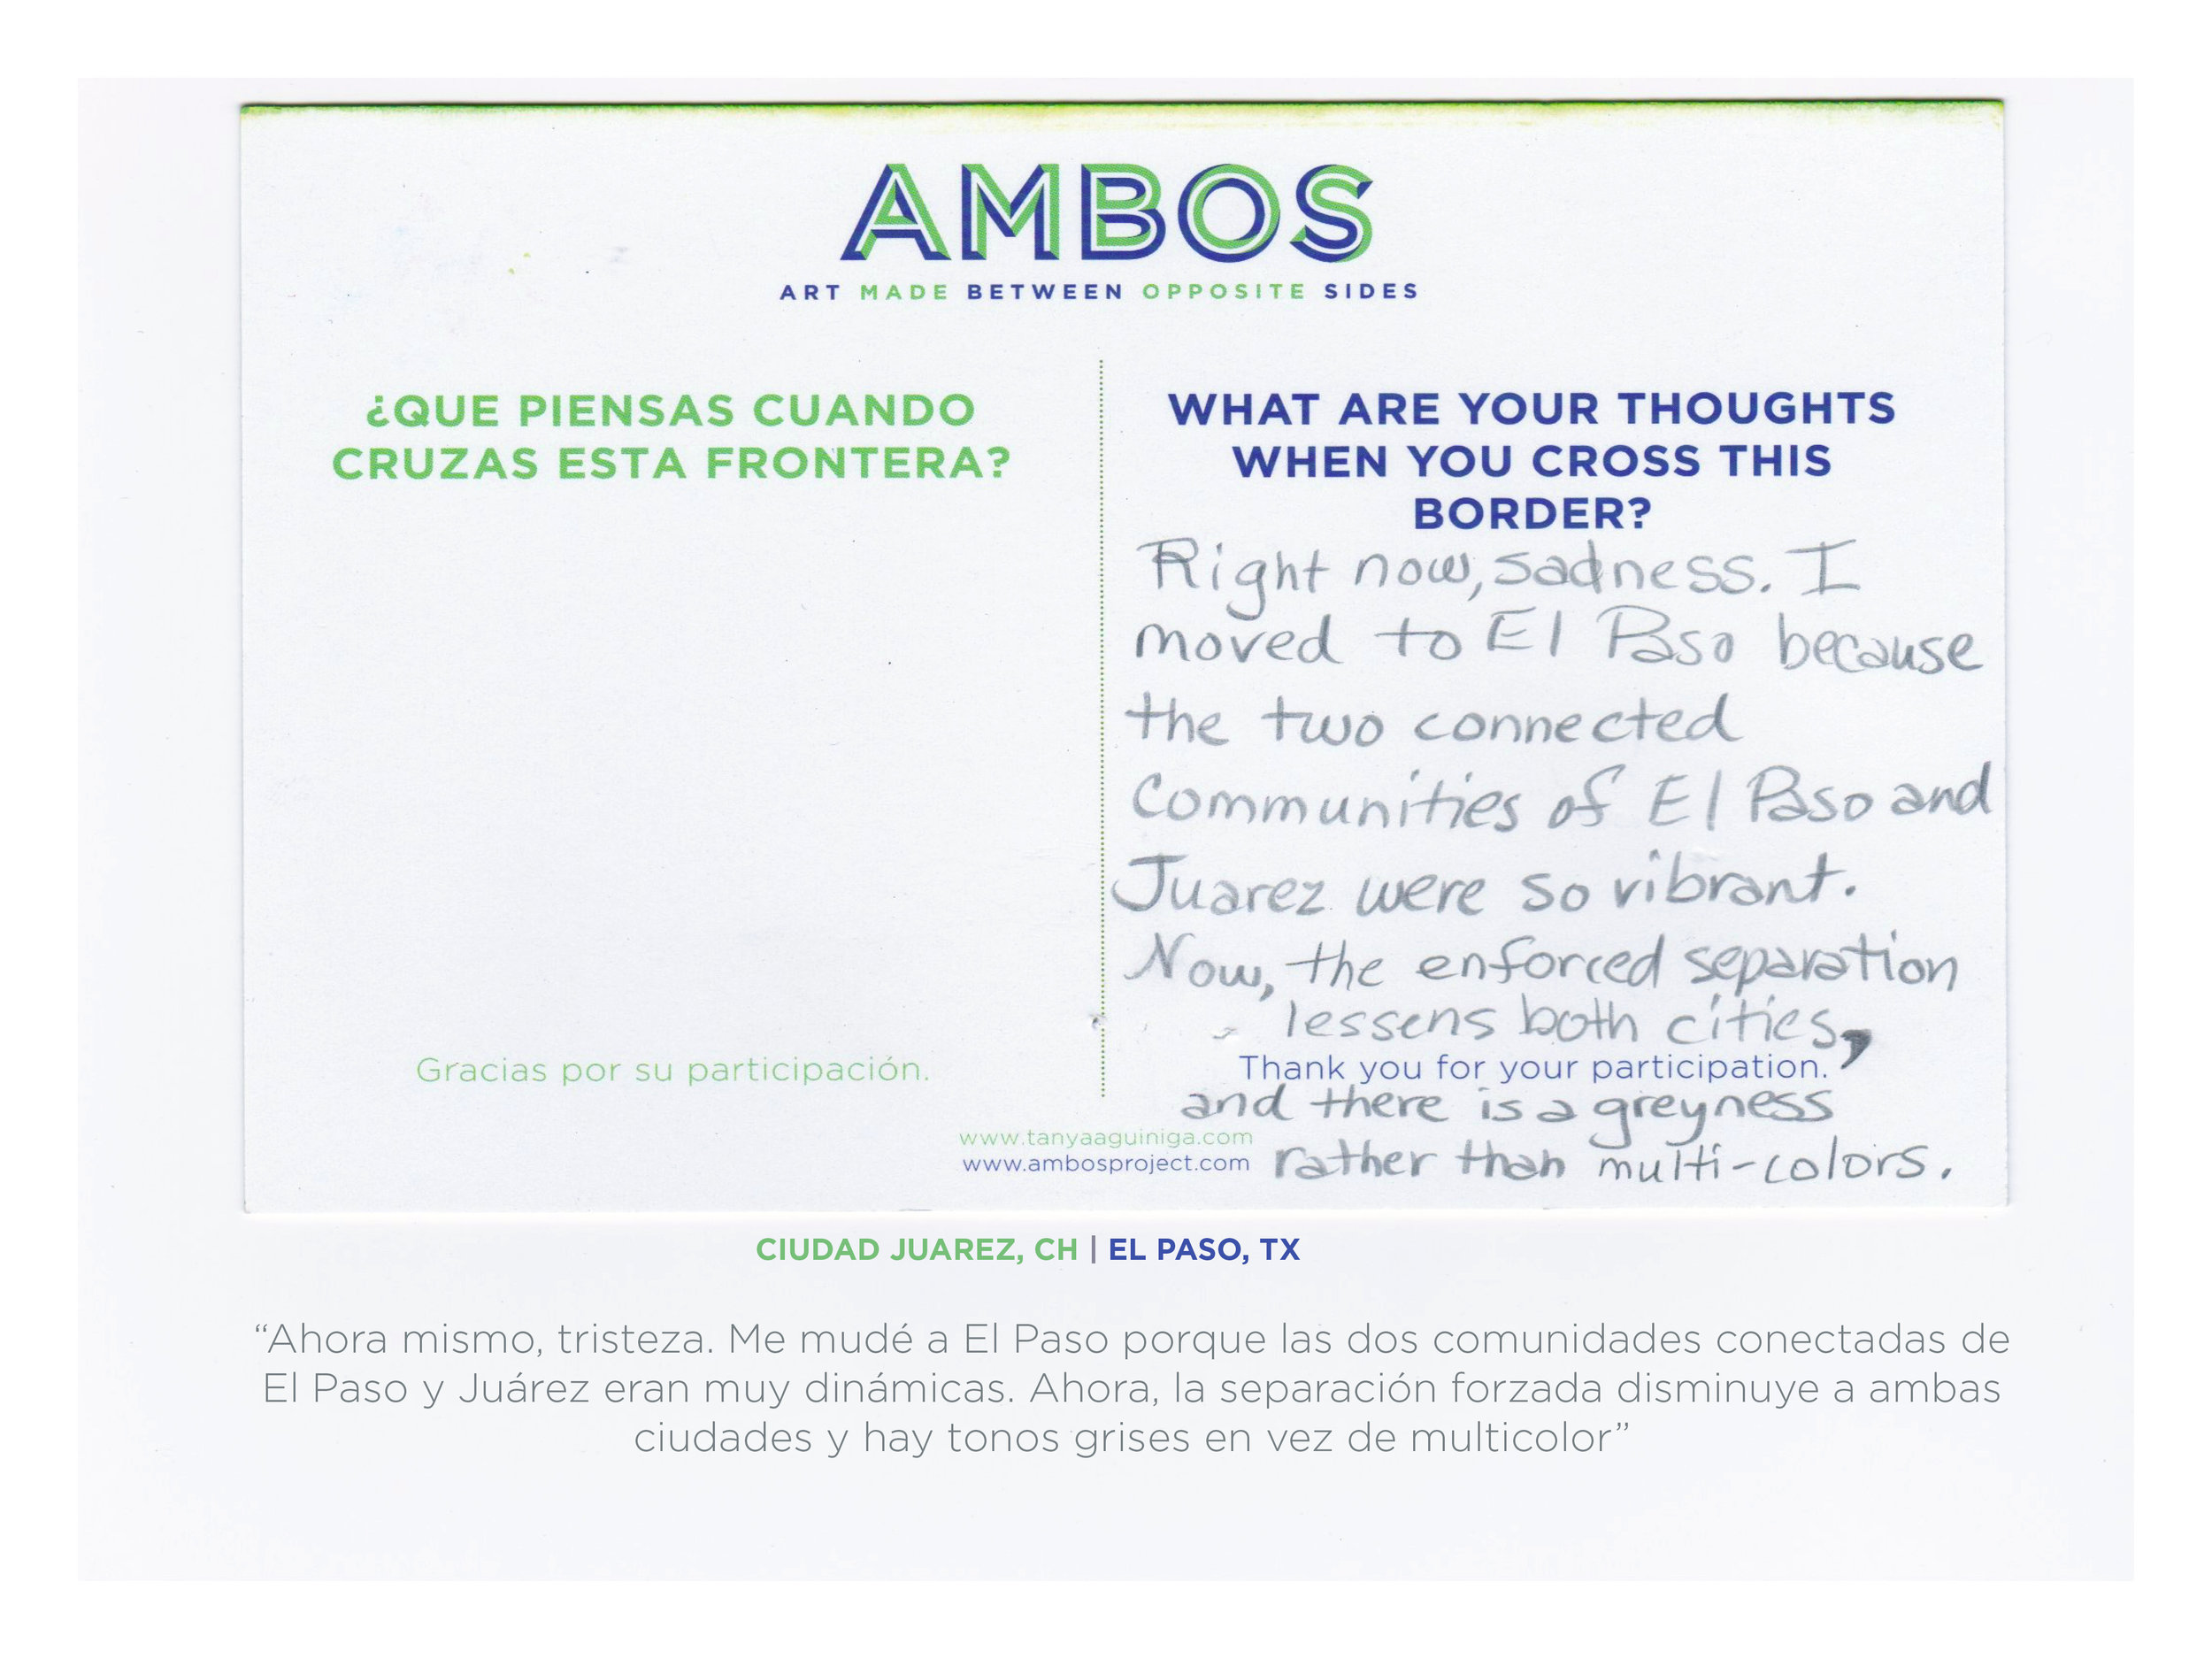 AMBOS
ART MADE BETWEEN OPPOSITE SIDES
¿QUE PIENSAS CUANDO
CRUZAS ESTA FRONTERA?
Gracias por su participación.
WHAT ARE YOUR THOUGHTS
WHEN YOU CROSS THIS
BORDER?
Right now, sadness. I
moved to El Paso because
the two connected
Communities of El Paso and
Juarez were so vibrant.
Now, the enforced separation
lessens both cities,
Thank you for your participation.
and there is a greyness
rather than multi-colors.
www.tanyaaguiniga.com
www.ambosproject.com
CIUDAD JUAREZ, CH | EL PASO, TX
“Ahora mismo, tristeza. Me mudé a El Paso porque las dos comunidades conectadas de
El Paso y Juárez eran muy dinámicas. Ahora, la separación forzada disminuye a ambas
ciudades y hay tonos grises en vez de multicolor”